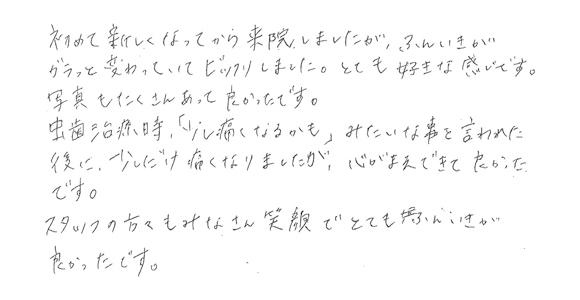 初めて新しくなってから来院しましたが、ふんいきが
ガラっと変わっていてビックリしました。とても好きな感じです。
写真もたくさんあって良かったです。
虫歯治療時、「少し痛くなるかも」みたいな事を言われた
後に、少しだけ痛くなりましたが、心がまえできて良かった
です。
スタッフの方々もみなさん笑顔でとてもふんいきが
良かったです。